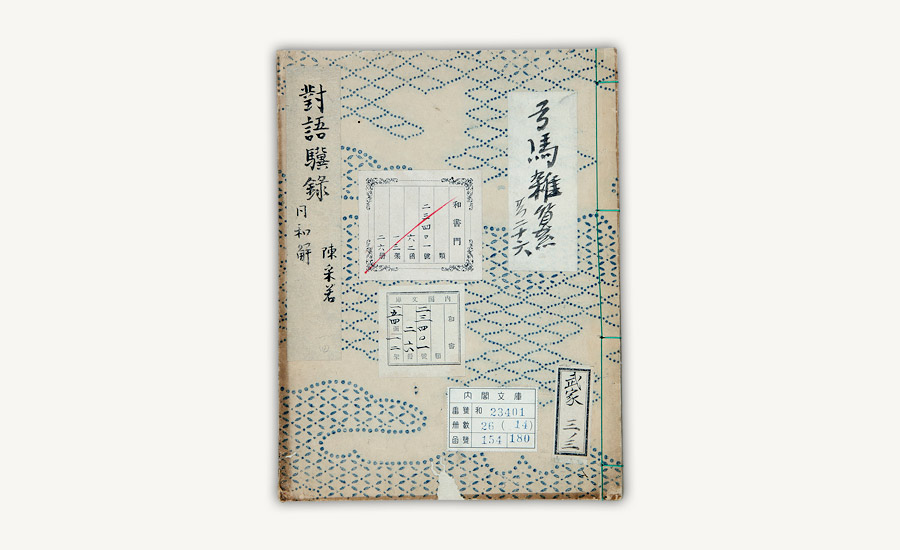 弓馬雑纂
共二十六
和書門
類
二三四〇一號
六二函
一二架
二六册
對語驥錄
同和解
陳采若
内閣文庫
和書
類
二三四〇一號
二六册
一五四函
一二架
内閣文庫
番號 和 23401
冊數 26 (14)
函號 154 180
武家
三ノ三